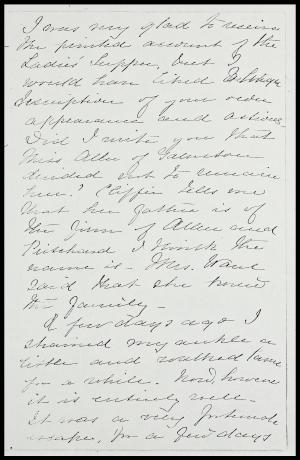 I was very glad to receive
the printed account of the
Ladies' Supper, but I
would have liked
description of your own
appearance and actions.
Did I write you that
Miss Allen of
decided not to remain
here? Cliffie tells me
that her father is of
the firm of Allen and
Prichard I think the
name is - Mrs. Ware
said that she knew
the family -
A few days ago I
strained my ankle a
little and walked lame
for a while. Now, however
it is entirely well.
It was a very fortunate
escape, for a few days